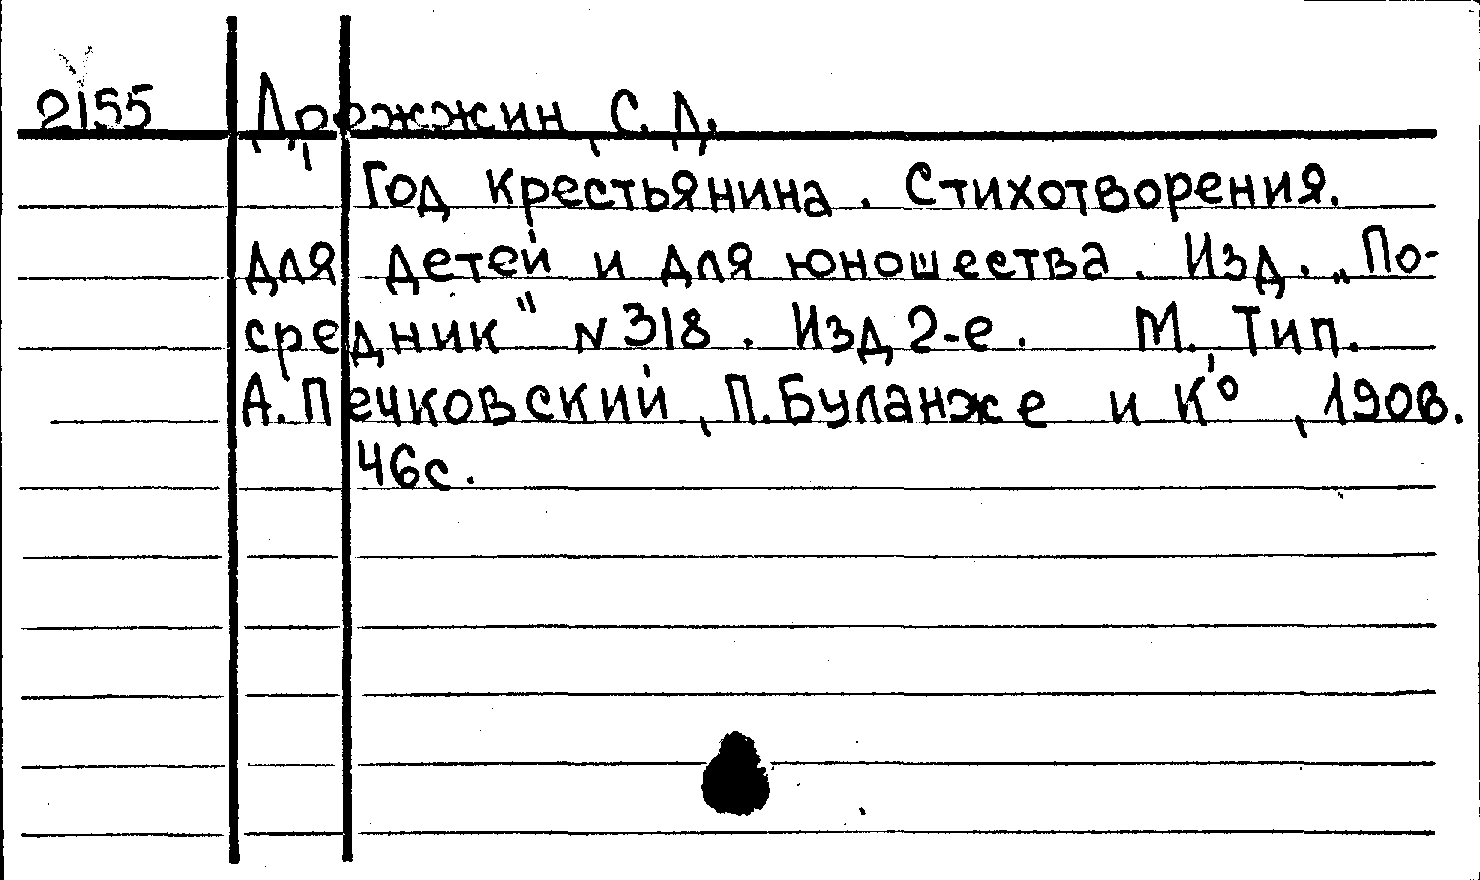 2155 Дрожжин, С. Д.
Год крестьянина. Стихотворения.
для детей и для юношества. Изд. „По-
средник" N 318. Изд 2-е. М., Тип.
А. Печковский, П. Буланже и К°, 1906.
46с.